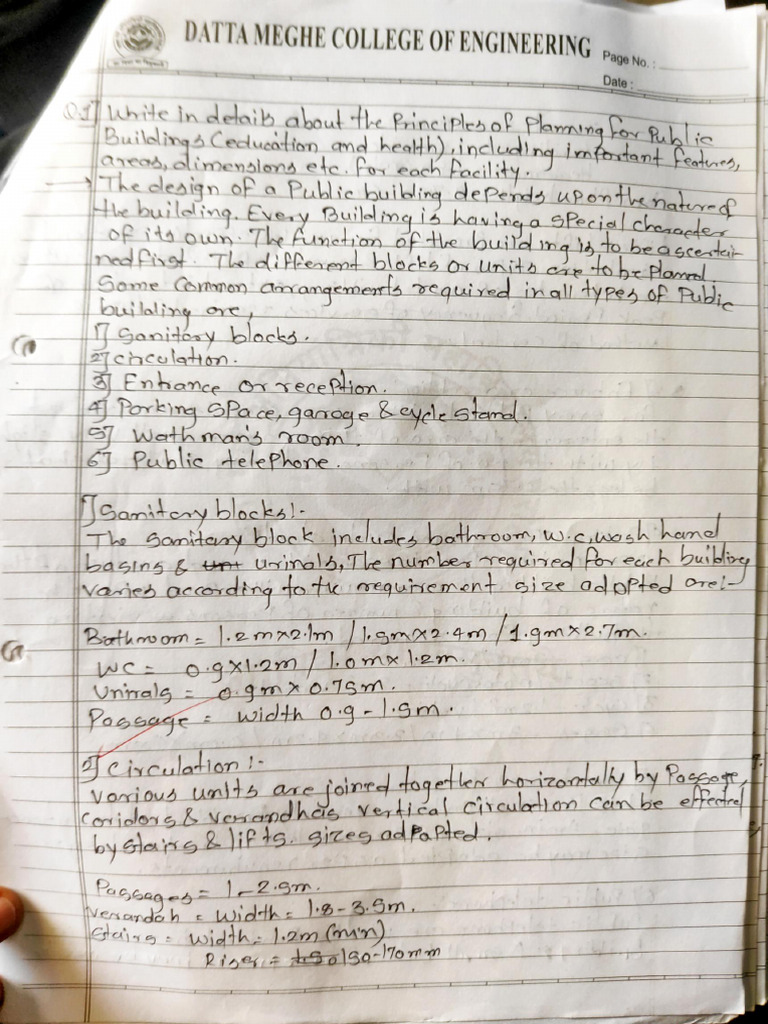 DATTA MEGHE COLLEGE OF ENGINEERING
Page No. :
Date :
Q.1] Write in details about the Principles of Planning for Public
Buildings (education and health), including important features,
areas, dimensions etc. for each facility.
→ The design of a Public building depends upon the nature of
the building. Every Building is having a special character
of its own. The function of the building is to be ascertai-
ned first. The different blocks or units are to be planed.
Some Common arrangements required in all types of Public
building are,
1] Sanitary blocks.
2] circulation.
3] Entrance or reception.
4] Parking space, garage & cycle stand.
5] Wathman's room.
6] Public telephone.
1] Sanitary blocks:-
The sanitary block includes bathroom, w.c, wash hand
basins & urinals, The number required for each building
varies according to the requirement size adopted are:-
Bathroom = 1.2m x 2.1m / 1.5m x 2.4m / 1.9m x 2.7m.
WC = 0.9 x 1.2m / 1.0m x 1.2m.
Urinals = 0.9m x 0.75m.
Passage = width 0.9 - 1.5m.
2] Circulation :-
Various units are joined together horizontally by Passage,
coridors & verandhas vertical circulation can be effected
by stairs & lifts. sizes adpapted.
Passages = 1 - 2.5m.
Verandah = width = 1.8 - 3.5m.
Stairs = width = 1.2m (min)
Riser = 150-170mm